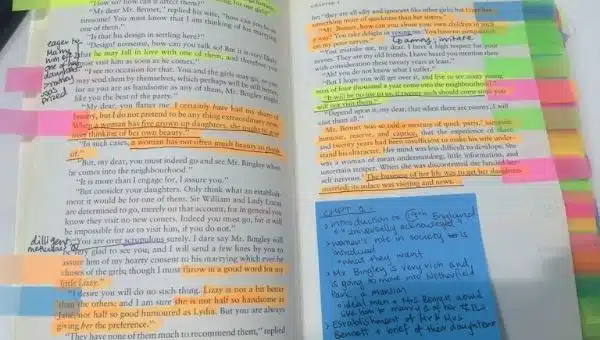 "How so? how can it affect them?"
"My dear Mr. Bennet," replied his wife, "how can you be so
tiresome! You must know that I am thinking of his marrying
one of them."
"Is that his design in settling here?"
"Design! nonsense, how can you talk so! But it is very likely
that he may fall in love with one of them, and therefore you
must visit him as soon as he comes."
"I see no occasion for that. You and the girls may go, or you
may send them by themselves, which perhaps will be still better,
for as you are as handsome as any of them, Mr. Bingley might
like you the best of the party."
"My dear, you flatter me. I certainly have had my share of
beauty, but I do not pretend to be any thing extraordinary now.
When a woman has five grown up daughters, she ought to give
over thinking of her own beauty."
"In such cases, a woman has not often much beauty to think
of."
"But, my dear, you must indeed go and see Mr. Bingley when
he comes into the neighbourhood."
"It is more than I engage for, I assure you."
"But consider your daughters. Only think what an establish-
ment it would be for one of them. Sir William and Lady Lucas
are determined to go, merely on that account, for in general you
know they visit no new comers. Indeed you must go, for it will
be impossible for us to visit him, if you do not."
diligent,
"You are over scrupulous surely. I dare say Mr. Bingley will
be very glad to see you; and I will send a few lines by you to
assure him of my hearty consent to his marrying which ever he
chuses of the girls; though I must throw in a good word for my
little Lizzy."
"I desire you will do no such thing. Lizzy is not a bit better
than the others; and I am sure she is not half so handsome as
Jane, nor half so good humoured as Lydia. But you are always
giving her the preference."
"They have none of them much to recommend them," replied
CHAPTER 1
he; "they are all silly and ignorant like other girls; but Lizzy has
something more of quickness than her sisters."
"Mr. Bennet, how can you abuse your own children in such
way? You take delight in vexing me. You have no compassion
on my poor nerves."
annoying, irritate
"You mistake me, my dear. I have a high respect for your
nerves. They are my old friends. I have heard you mention them
with consideration these twenty years at least."
"Ah! you do not know what I suffer."
"But I hope you will get over it, and live to see many young
men of four thousand a year come into the neighbourhood."
"It will be no use to us, if twenty such should come since you
will not visit them."
"Depend upon it, my dear, that when there are twenty, I will
visit them all."
Mr. Bennet was so odd a mixture of quick parts, sarcastic
humour, reserve, and caprice, that the experience of three
and twenty years had been insufficient to make his wife under-
stand his character. Her mind was less difficult to develope. She
was a woman of mean understanding, little information, and
uncertain temper. When she was discontented she fancied her-
self nervous. The business of her life was to get her daughters
married; its solace was visiting and news.
- introduction to 19th England
"universally acknowledged"
- women's role in society is
introduced
what they want
- Mr Bingley is very rich and
is going to move into Netherfield
Park, a mansion
ideal man & Mrs Bennet would
like him to marry 1 of her
- Establishment of Mr & Mrs
Bennett & brief of their daughters